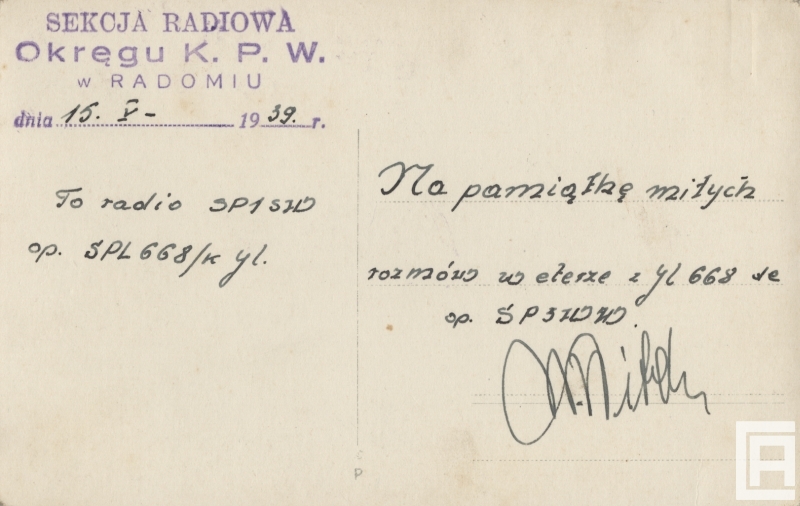 SEKCJA RADIOWA
Okręgu K. P. W.
w RADOMIU
dnia 15. V - 1939. r.
To radio SP1SW
op. SPL668/k yl.
Na pamiątkę miłych
rozmów w eterze z yl 668 de
op. SP3WW.
C
P
CA